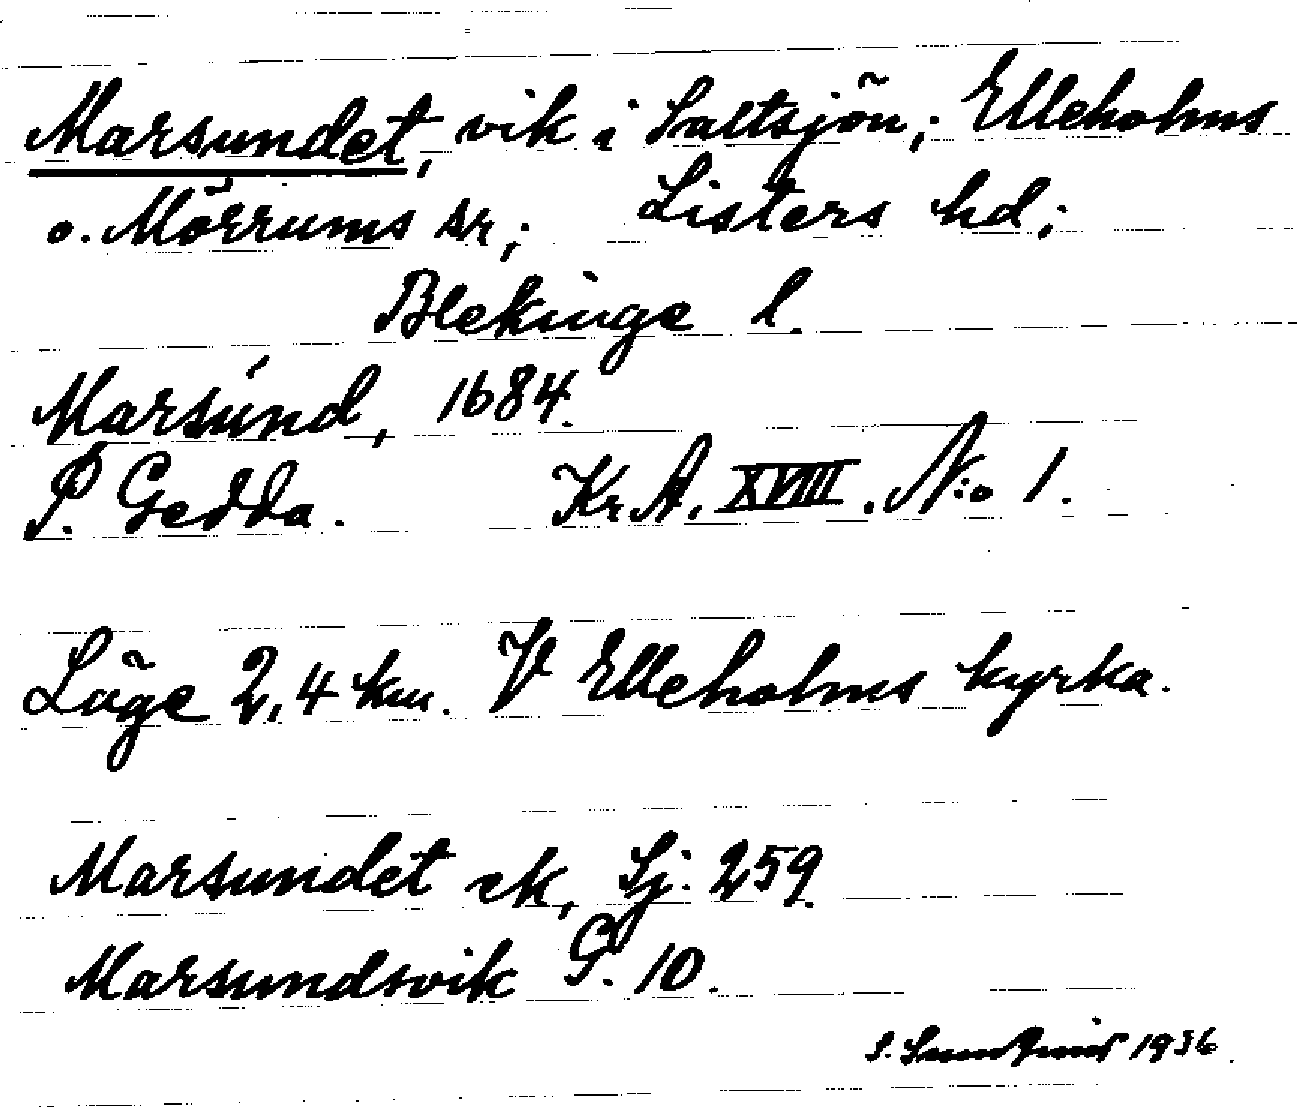 Marsundet, vik i Saltsjön; Elleholms
o. Mörrums sr; Listers hd;
Blekinge l.
Marsúnd, 1684.
P. Gedda. Kr. A. XVIII. N:o 1.
Läge 2,4 km. V Elleholms kyrka.
Marsundet ek, Sj: 259.
Marsundsvik G. 10.
S. 1936.